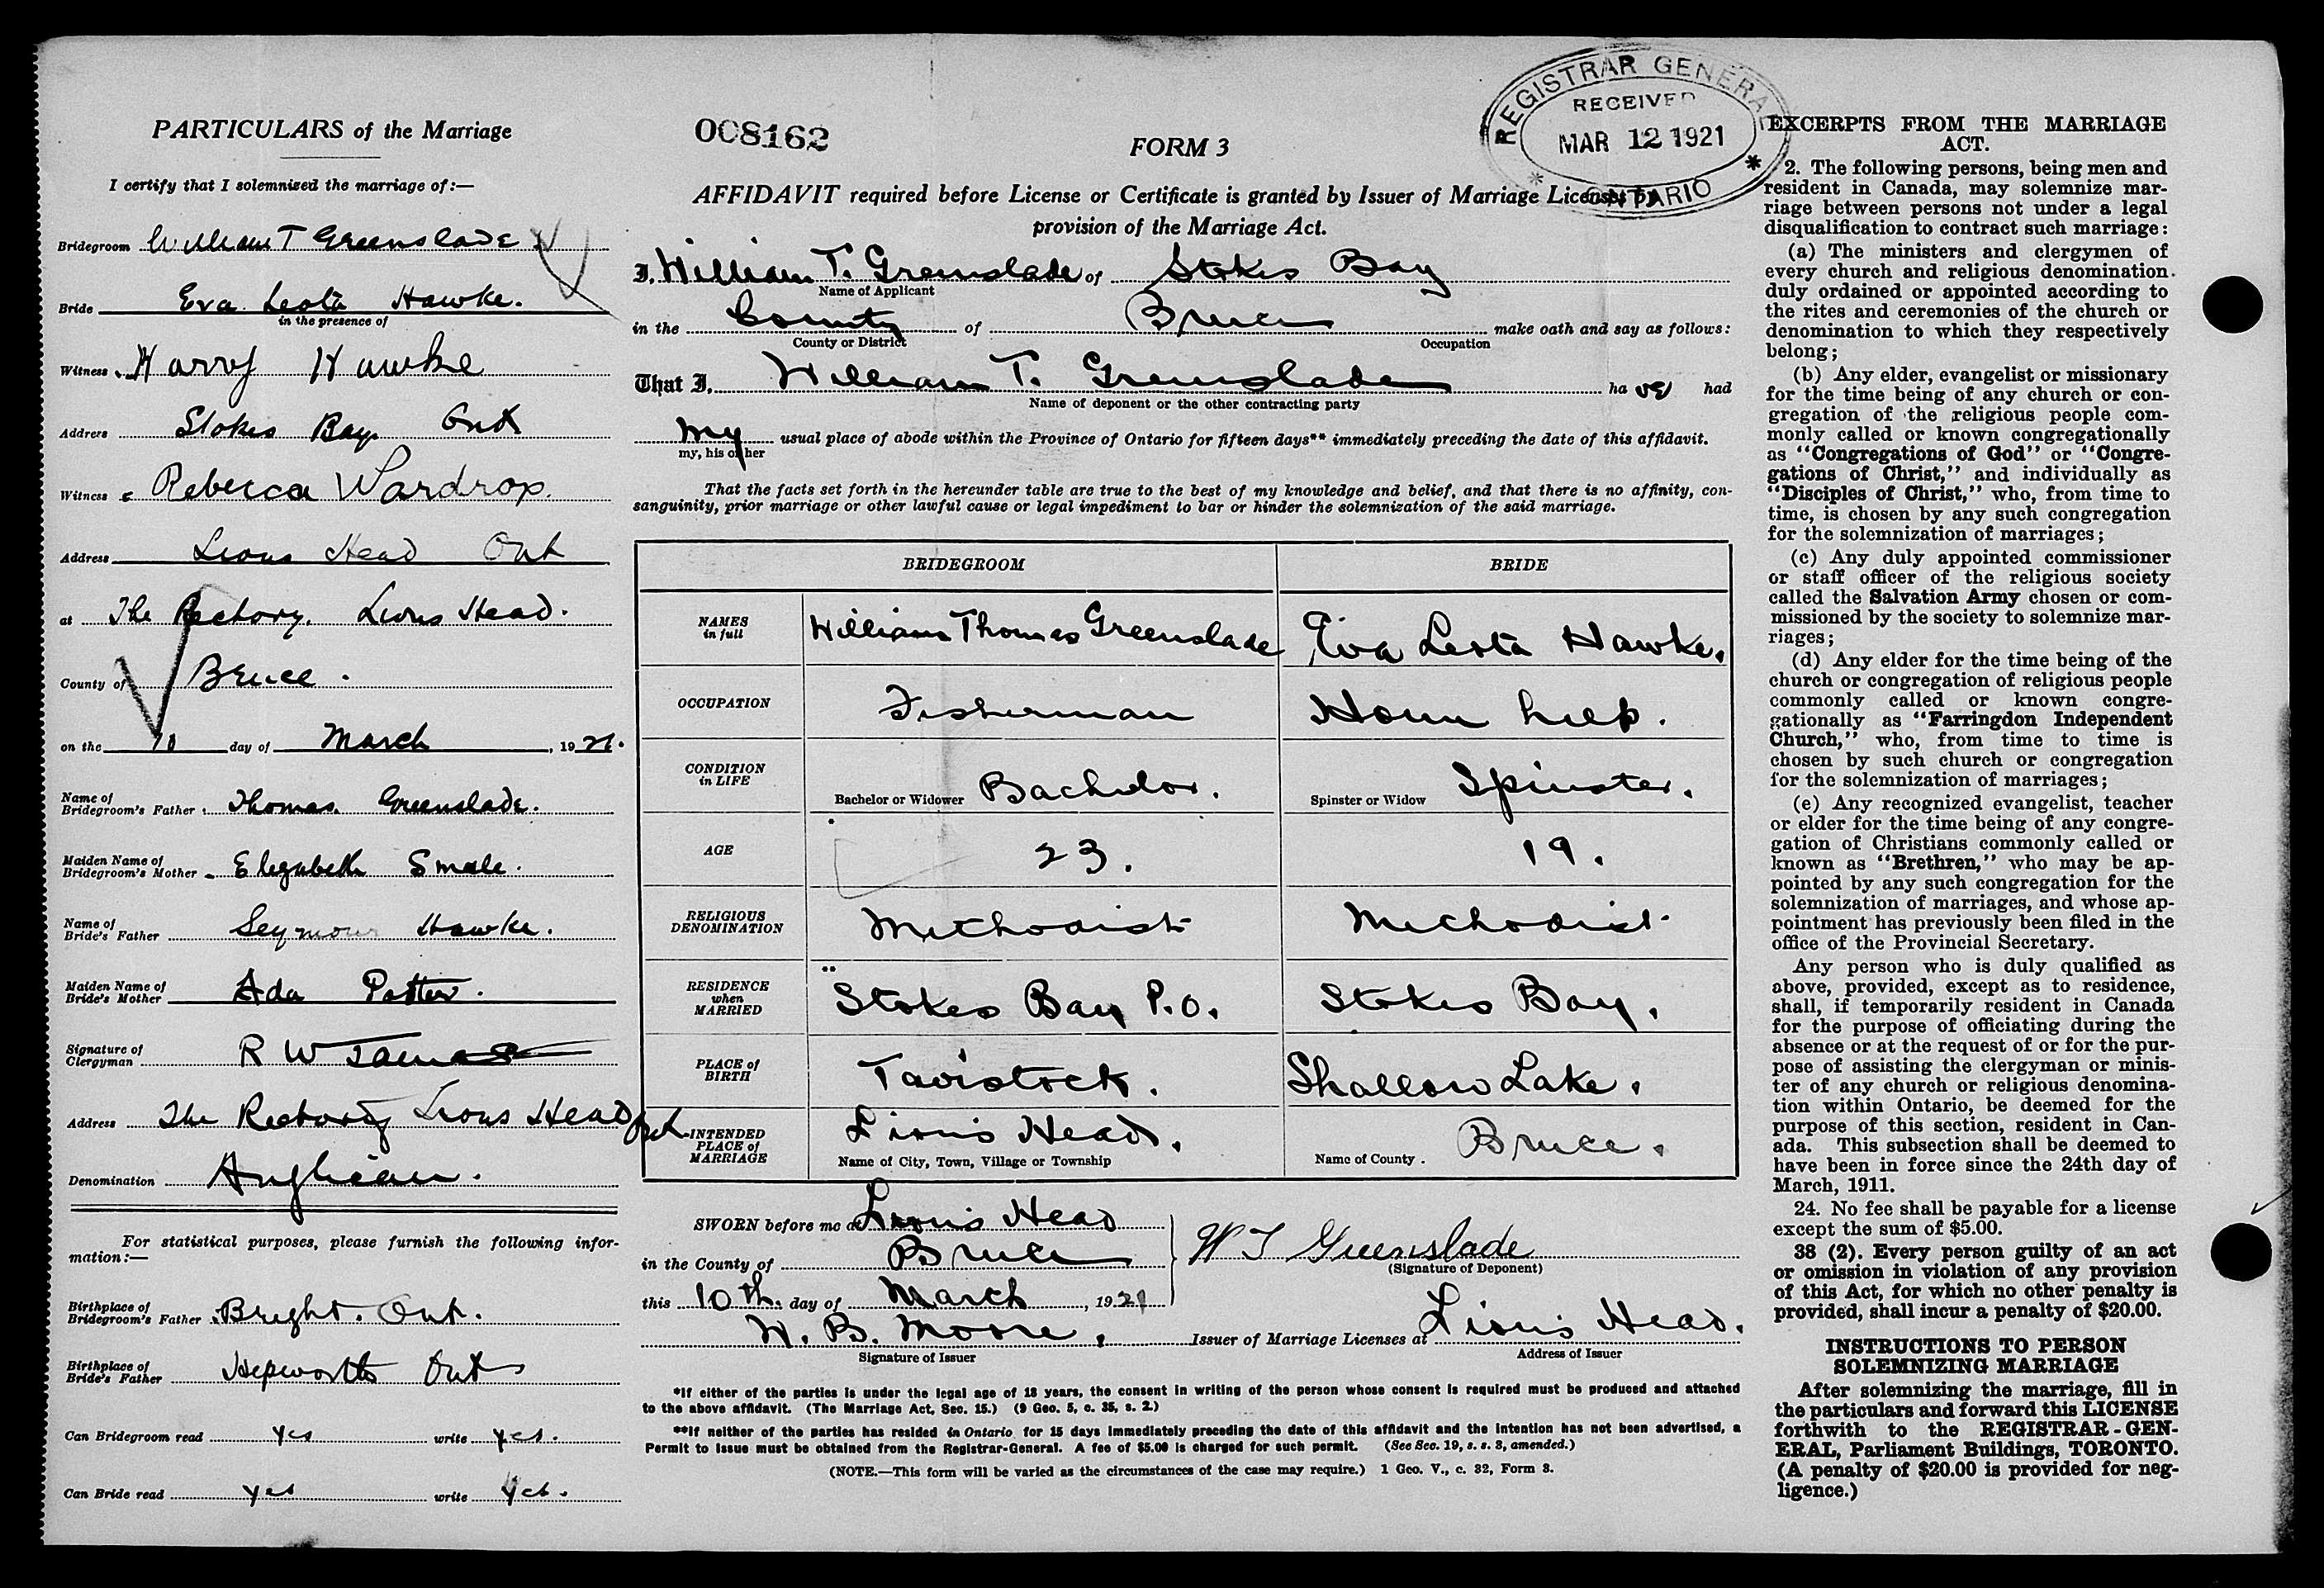 PARTICULARS of the Marriage
I certify that I solemnized the marriage of:—
Bridegroom William T Greenslade
Bride Eva Leota Hawke.
in the presence of
Witness Harry Hawke
Address Stokes Bay Ont
Witness Rebecca Wardrop.
Address Lions Head Ont
at The Rectory. Lions Head.
County of Bruce.
on the 10 day of March, 1921.
Name of
Bridegroom's Father Thomas Greenslade.
Maiden Name of
Bridegroom's Mother Elizabeth Smale.
Name of
Bride's Father Seymour Hawke.
Maiden Name of
Bride's Mother Ada Potter.
Signature of
Clergyman R W James
Address The Rectory Lions Head Ont
Denomination Anglican.
For statistical purposes, please furnish the following infor-
mation:—
Birthplace of
Bridegroom's Father Bright. Ont.
Birthplace of
Bride's Father Hepworth Ont
Can Bridegroom read yes write yes.
Can Bride read yes write yes.
008162
FORM 3
REGISTRAR GENERAL
RECEIVED
MAR 12 1921
ONTARIO
AFFIDAVIT required before License or Certificate is granted by Issuer of Marriage Licenses by
provision of the Marriage Act.
I, William T. Greenslade of Stokes Bay
Name of Applicant
in the County of Bruce make oath and say as follows:
County or District Occupation
That I, William T. Greenslade have had
Name of deponent or the other contracting party
my usual place of abode within the Province of Ontario for fifteen days** immediately preceding the date of this affidavit.
my, his or her
That the facts set forth in the hereunder table are true to the best of my knowledge and belief, and that there is no affinity, con-
sanguinity, prior marriage or other lawful cause or legal impediment to bar or hinder the solemnization of the said marriage.
BRIDEGROOM BRIDE
NAMES
in full William Thomas Greenslade Eva Leota Hawke.
OCCUPATION Fisherman House help.
CONDITION
in LIFE Bachelor or Widower Bachelor. Spinster or Widow Spinster.
AGE 23. 19.
RELIGIOUS
DENOMINATION Methodist Methodist
RESIDENCE
when
MARRIED Stokes Bay P.O. Stokes Bay.
PLACE of
BIRTH Tavistock. Shallow Lake.
INTENDED
PLACE of
MARRIAGE Lion's Head. Bruce.
Name of City, Town, Village or Township Name of County
SWORN before me at Lion's Head
in the County of Bruce
this 10th. day of March, 1921
W T Greenslade
(Signature of Deponent)
W. B. Moore. Issuer of Marriage Licenses at Lion's Head.
Signature of Issuer Address of Issuer
*If either of the parties is under the legal age of 18 years, the consent in writing of the person whose consent is required must be produced and attached
to the above affidavit. (The Marriage Act, Sec. 15.) (9 Geo. 5, c. 35, s. 2.)
**If neither of the parties has resided in Ontario for 15 days immediately preceding the date of this affidavit and the intention has not been advertised, a
Permit to issue must be obtained from the Registrar-General. A fee of $5.00 is charged for such permit. (See Sec. 19, s. s. 3, amended.)
(NOTE.—This form will be varied as the circumstances of the case may require.) 1 Geo. V., c. 32, Form 3.
EXCERPTS FROM THE MARRIAGE
ACT.
2. The following persons, being men and
resident in Canada, may solemnize mar-
riage between persons not under a legal
disqualification to contract such marriage:
(a) The ministers and clergymen of
every church and religious denomination
duly ordained or appointed according to
the rites and ceremonies of the church or
denomination to which they respectively
belong;
(b) Any elder, evangelist or missionary
for the time being of any church or con-
gregation of the religious people com-
monly called or known congregationally
as "Congregations of God" or "Congre-
gations of Christ," and individually as
"Disciples of Christ," who, from time to
time, is chosen by any such congregation
for the solemnization of marriages;
(c) Any duly appointed commissioner
or staff officer of the religious society
called the Salvation Army chosen or com-
missioned by the society to solemnize mar-
riages;
(d) Any elder for the time being of the
church or congregation of religious people
commonly called or known congre-
gationally as "Farringdon Independent
Church," who, from time to time is
chosen by such church or congregation
for the solemnization of marriages;
(e) Any recognized evangelist, teacher
or elder for the time being of any congre-
gation of Christians commonly called or
known as "Brethren," who may be ap-
pointed by any such congregation for the
solemnization of marriages, and whose ap-
pointment has previously been filed in the
office of the Provincial Secretary.
Any person who is duly qualified as
above, provided, except as to residence,
shall, if temporarily resident in Canada
for the purpose of officiating during the
absence or at the request of or for the pur-
pose of assisting the clergyman or minis-
ter of any church or religious denomina-
tion within Ontario, be deemed for the
purpose of this section, resident in Can-
ada. This subsection shall be deemed to
have been in force since the 24th day of
March, 1911.
24. No fee shall be payable for a license
except the sum of $5.00.
38 (2). Every person guilty of an act
or omission in violation of any provision
of this Act, for which no other penalty is
provided, shall incur a penalty of $20.00.
INSTRUCTIONS TO PERSON
SOLEMNIZING MARRIAGE
After solemnizing the marriage, fill in
the particulars and forward this LICENSE
forthwith to the REGISTRAR-GEN-
ERAL, Parliament Buildings, TORONTO.
(A penalty of $20.00 is provided for neg-
ligence.)